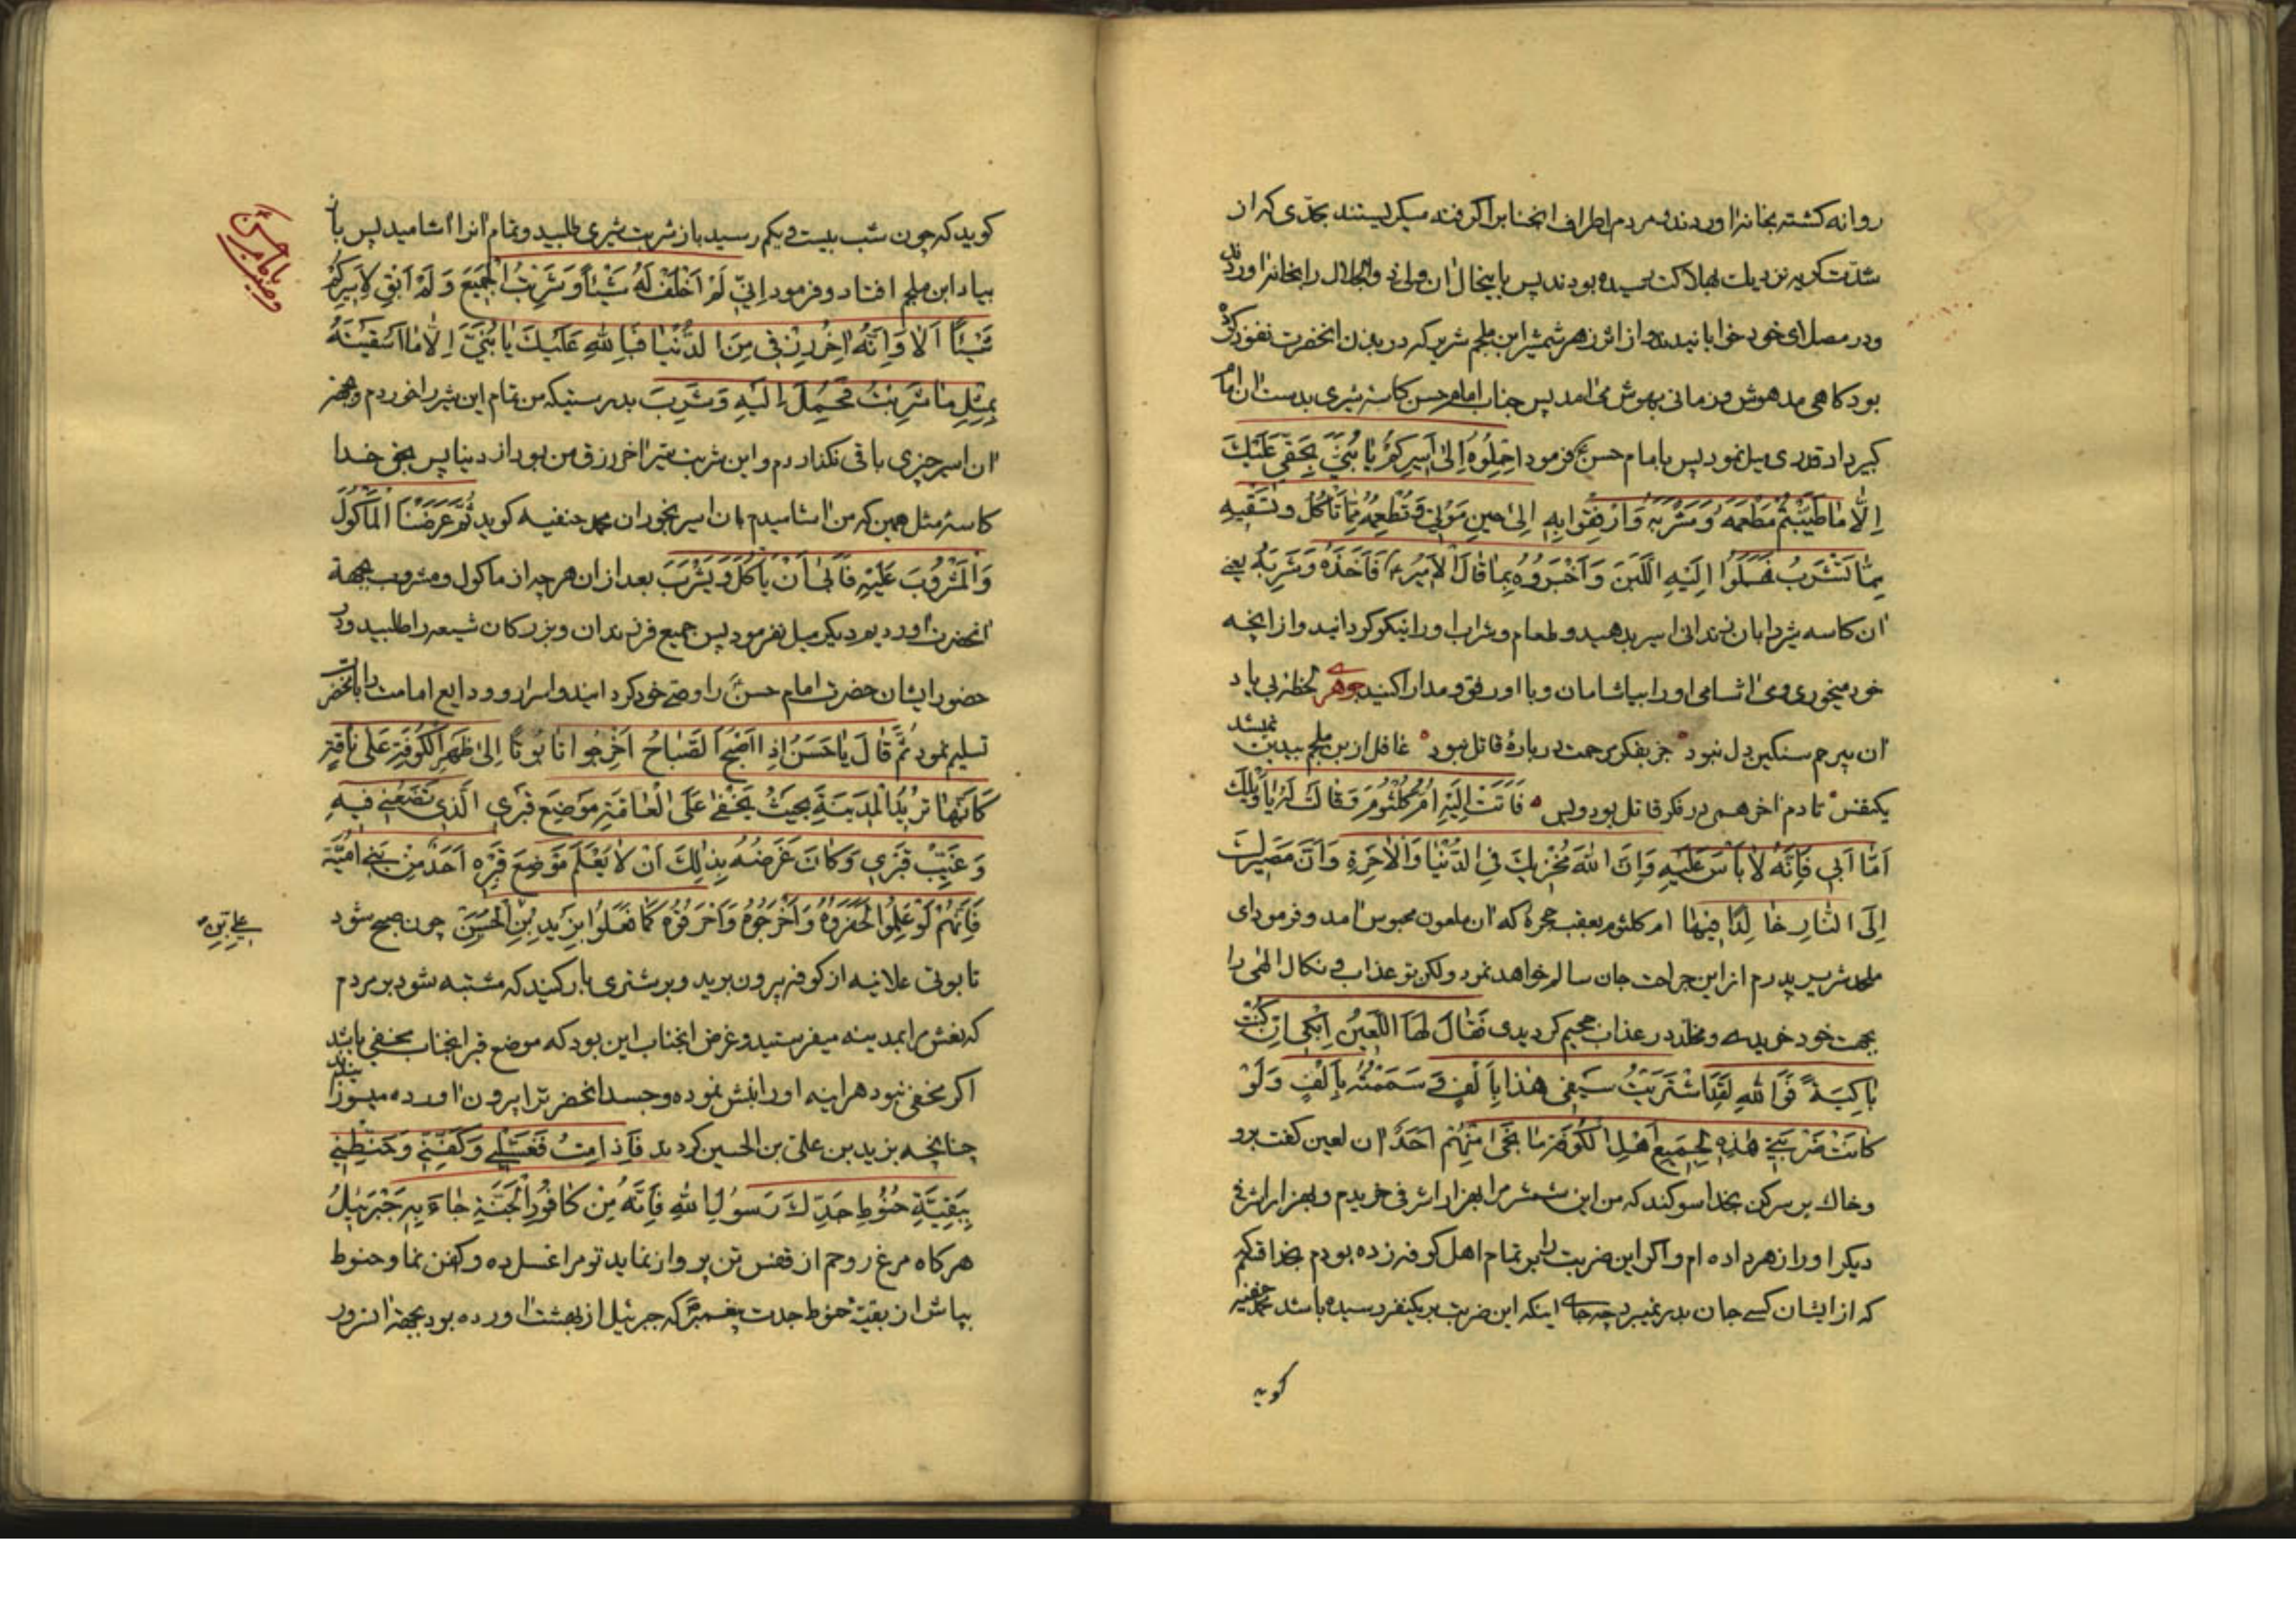 روانه کشته بخانه اوردند و مردم اطراف انجناب را گرفته میگریستند بحدّی که از
شدّت کریه نزدیک بهلاکت رسیده بودند پس باینحال ان ولی ذو الجلال را بخانه اوردند
و در مصلای خود خوابانیدند و از اثر زهر شمشیر ابن ملجم شریر که در بدن انحضرت نفوذ کرده
بود کاهی مدهوش و زمانی بهوش می امد پس جناب امام حسن کاسه شیری بدست ان امام
کبیر داد قدری میل نمود پس بامام حسن ع فرمود احملُوهُ اِلیٰ اَسیرِکُم یا بُنَیَّ بِحَقّی عَلَیْکَ
اِلّا ما طَیَّبْتُم مَطْعَمَهُ وَ مَشْرَبَهُ وَارْفِقُوا بِهِ اِلیٰ حینِ مَوْتی وَ تُطْعِمُهُ مِمّا تَأکُلُ و تَسْقیهِ
مِمّا تَشْرَبُ فَحَمَلُوا اِلَیْهِ اللَّبَنَ وَ اَخْبَرُوهُ بِما قالَ الْاَمیرُ ع فَاَخَذَهُ وَ شَرِبَهُ یعنی
ان کاسه شیر را بان زندانی اسیر بدهید و طعام و شراب او را نیکو کردانید و از انچه
خود میخوری و می اشامی او را بیاشامان و با او رفق و مدارا کنید جوهری لحظهٔ بی یاد
ان بیرحم سنکین دل نبود جز بفکر مرحمت در بارهٔ قاتل نبود غافل از بن ملجم بیدین نمیشد
یکنفس تا دم اخر همی در فکر قاتل بود و بس فَاَتَتْ اِلَیْهِ اُمُّ کُلْثُومَ وَ قالَتْ لَهُ یا وَیْلَکَ
اَمّا اَبی فَاِنَّهُ لا بَأسَ عَلَیْهِ وَاِنَّ اللهَ مُخْزیکَ فِی الدُّنْیا وَالْاخِرَةِ وَاَنَّ مَصیرَکَ
اِلَی النّارِ خالِدًا فیها ام کلثوم بعقب حجرهٔ که ان ملعون محبوس امد و فرمود ای
ملحد شریر پدرم از این جراحت جان سالم خواهد نمود ولکن تو عذاب و نکال الهی را
بجهت خود خریدی و مخلّد در عذاب جحیم کردیدی فَقالَ لَهَا اللَّعینُ اِبْکی اِنْ کُنْتِ
باکِیَةً فَوَاللهِ لَقَدِ اشْتَرَیْتُ سَیْفی هٰذا بِاَلْفٍ وَ سَمَمْتُهُ بِاَلْفٍ وَلَوْ
کانَتْ ضَرْبَتی هٰذِهِ لِجَمیعِ اَهْلِ الْکُوفَةِ ما نَجیٰ مِنْهُمْ اَحَدٌ ان لعین کفت برو
و خاک بر سر کن بخدا سوکند که من این شمشیر را بهزار اشرفی خریدم و بهزار اشرفی
دیکر او را زهر داده ام و اکر این ضربت را بر تمام اهل کوفه زده بودم بخدا قسم
که از ایشان کسی جان بدر نمیبرد چه جای اینکه این ضربت بر یکنفر رسیده باشد محمد حنفیه
کوید
کوید که چون شب بیست و یکم رسید باز شربت شیری طلبید و تمام انرا اشامید پس باز
بیاد ابن ملجم افتاد و فرمود اِنّی لَمْ اُخَلِّفْ لَهُ شَیْئاً وَ شَرِبْتُ الْجَمیعَ وَلَمْ اَبْقِ لِاَسیرِکُمْ
شَیْئاً اَلا وَاِنَّهُ اخِرُ رِزْقی مِنَ الدُّنْیا فَبِاللهِ عَلَیْکَ یا بُنَیَّ اِلّا ما اَسْقَیْتَهُ
بِمِثْلِ ما شَرِبْتُ فَحُمِلَ اِلَیْهِ وَ شَرِبَ بدرستیکه من تمام این شیر را خوردم و بجهة
ان اسیر چیزی باقی نکذاردم و این شربت شیر اخر رزق من بود از دنیا پس بحق خدا
کاسهٔ مثل همین که من اشامیدم بان اسیر بخوران محمد حنفیه کوید ثُمَّ عَرَضْنَا الْمَأکُولَ
وَالْمَشْرُوبَ عَلَیْهِ فَاَبیٰ اَنْ یَأکُلَ وَ یَشْرَبَ بعد از ان هر چه از ماکول و مشروب بجهة
انحضرت اوردیم دیکر میل نفرمود پس جمیع فرزندان و بزرکان شیعه را طلبید و در
حضور ایشان حضرت امام حسن را وصی خود کردانید و اسرار و ودایع امامت را بانحضرت
تسلیم نمود ثُمَّ قالَ یا حَسَنُ اِذا اَصْبَحَ الصَّباحُ اَخْرِجُوا تابُوتًا اِلیٰ ظَهْرِ الْکُوفَةِ عَلیٰ ناقَةٍ
کَاَنَّها تُریدُ الْمَدینَةَ بِحَیْثُ یَخْفیٰ عَلَی الْعامَّةِ مَوْضِعُ قَبْرِی الَّذی تَضَعُنی فیهِ
وَ غَیِّبْ قَبْری وَکانَ غَرَضُهُ بِذٰلِکَ اَنْ لا یَعْلَمَ مَوْضِعَ قَبْرِهِ اَحَدٌ مِنْ بَنی اُمَیَّةَ
فَاِنَّهُمْ لَوْ عَلِمُوا لَحَفَرُوهُ وَ اَخْرَجُوهُ وَ اَحْرَقُوهُ کَما فَعَلُوا بِزَیْدِ بْنِ الْحُسَیْنِ چون صبح شود
تابوتی علانیه از کوفه بیرون برید و بر شتری بار کنید که مشتبه شود بر مردم
که نعش مرا بمدینه میفرستید و غرض انجناب این بود که موضع قبر انجناب مخفی باشد
اکر مخفی نبود هراینه او را نبش نموده و جسد انحضرت را بیرون اورده میسوزانیدند
چنانچه بزید بن علی بن الحسین کردند فَاِذا مِتُّ فَغَسِّلْنی وَ کَفِّنّی وَ حَنِّطْنی
بِبَقِیَّةِ حَنُوطِ جَدِّکَ رَسُولِ اللهِ فَاِنَّهُ مِنْ کافُورِ الْجَنَّةِ جاءَ بِهِ جَبْرَئیلُ
هرکاه مرغ روحم از قفس تن پرواز نماید تو مرا غسل ده و کفن نما و حنوط
بپاش از بقیهٔ حنوط جدت پیغمبر که جبرئیل از بهشت اورده بود بجهة انسرور